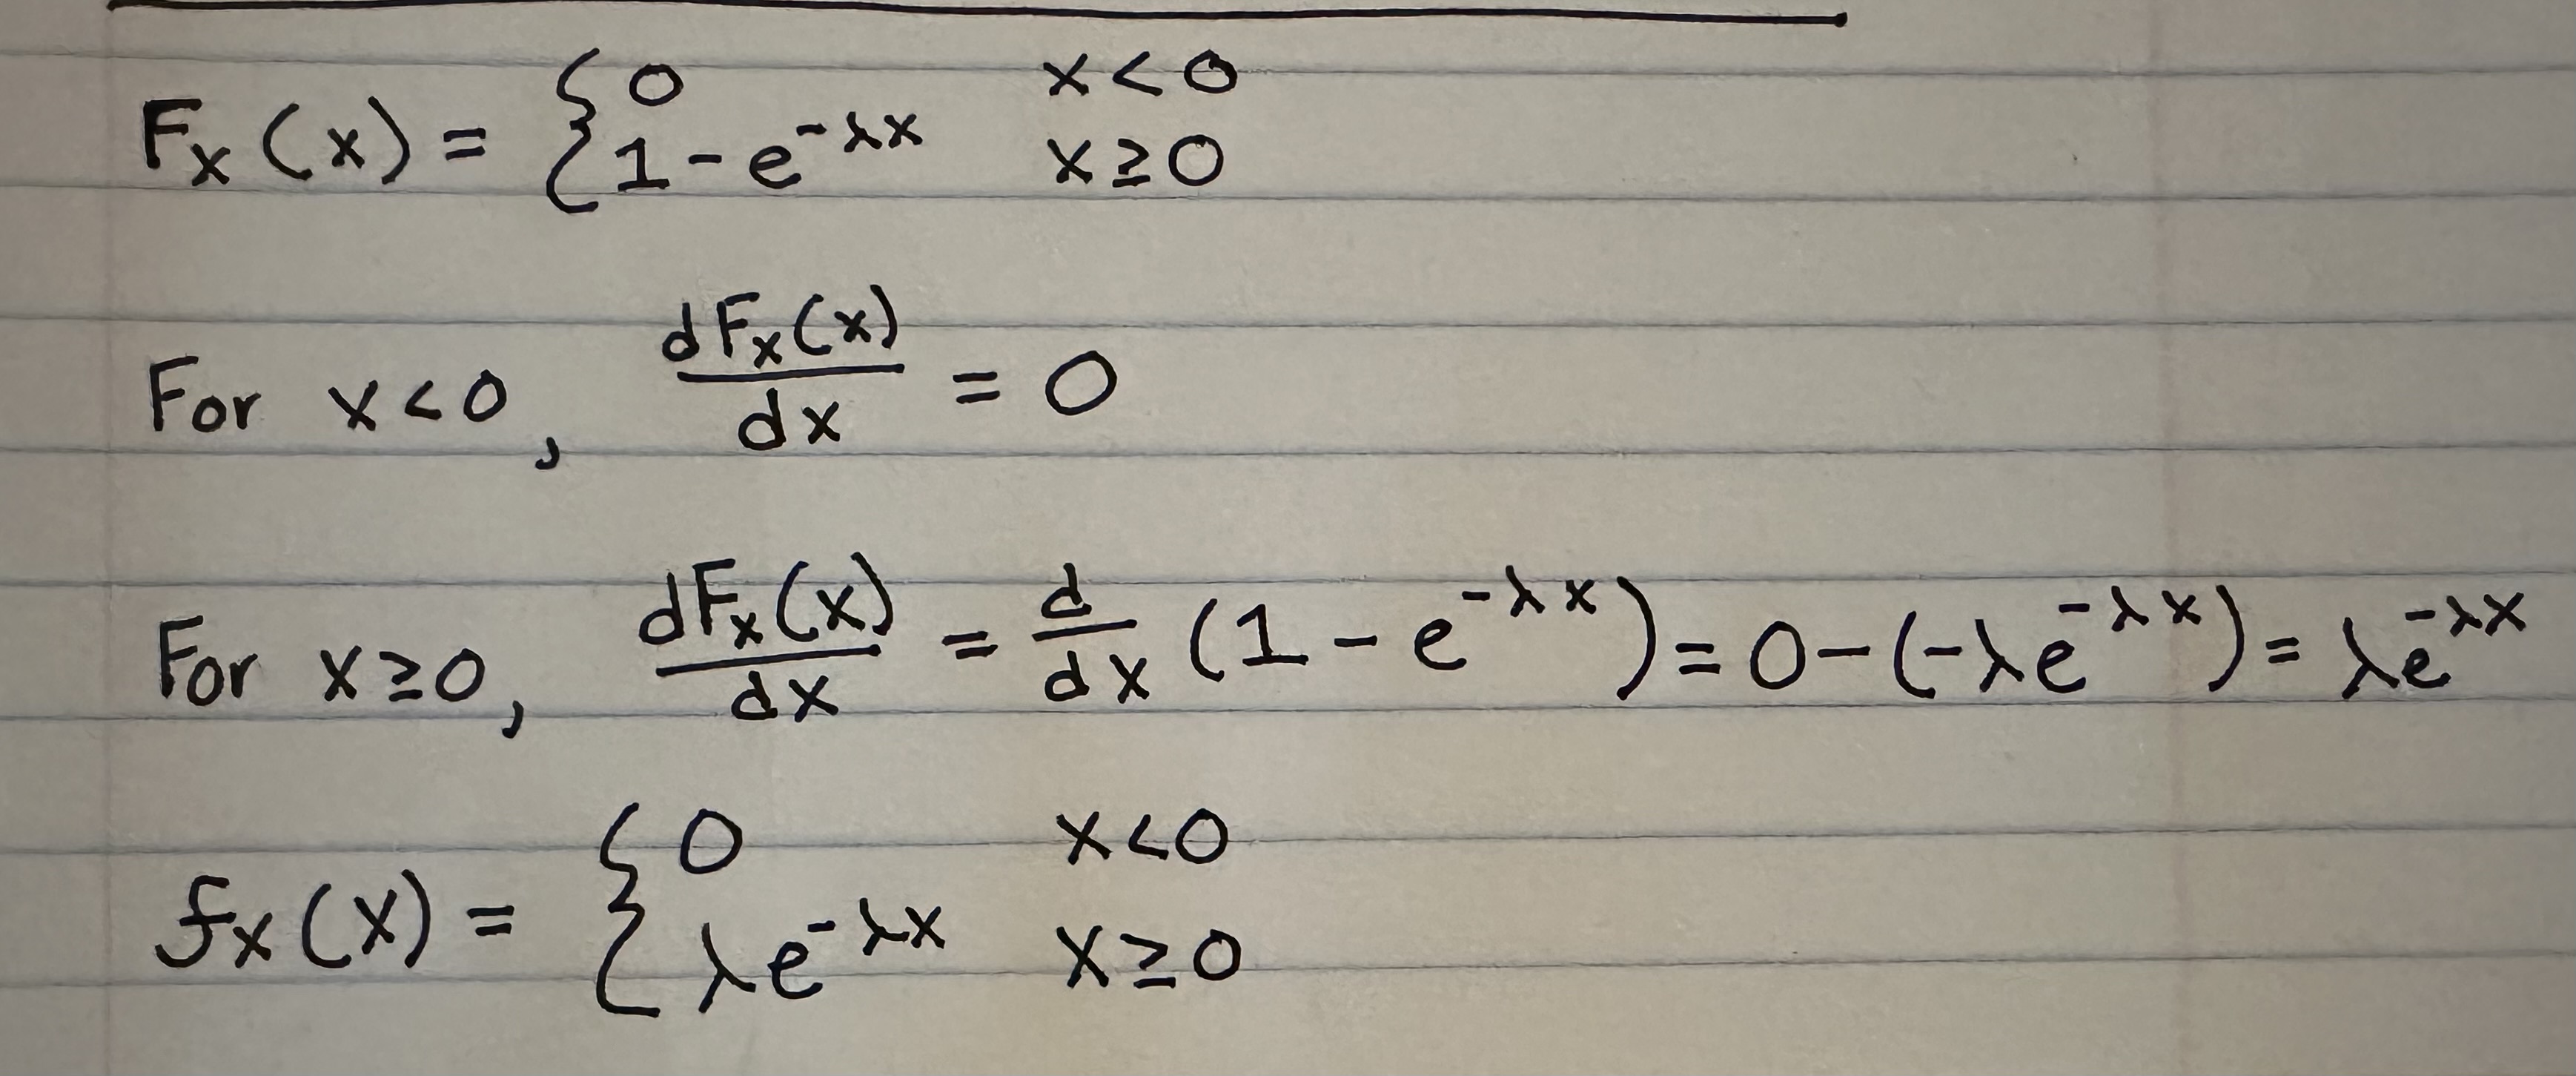 Fₓ(x) = { 0 x<0
{ 1-e^{-λx} x≥0
For x<0, dFₓ(x)/dx = 0
For x≥0, dFₓ(x)/dx = d/dx (1-e^{-λx}) = 0-(-λe^{-λx}) = λe^{-λx}
fₓ(x) = { 0 x<0
{ λe^{-λx} x≥0